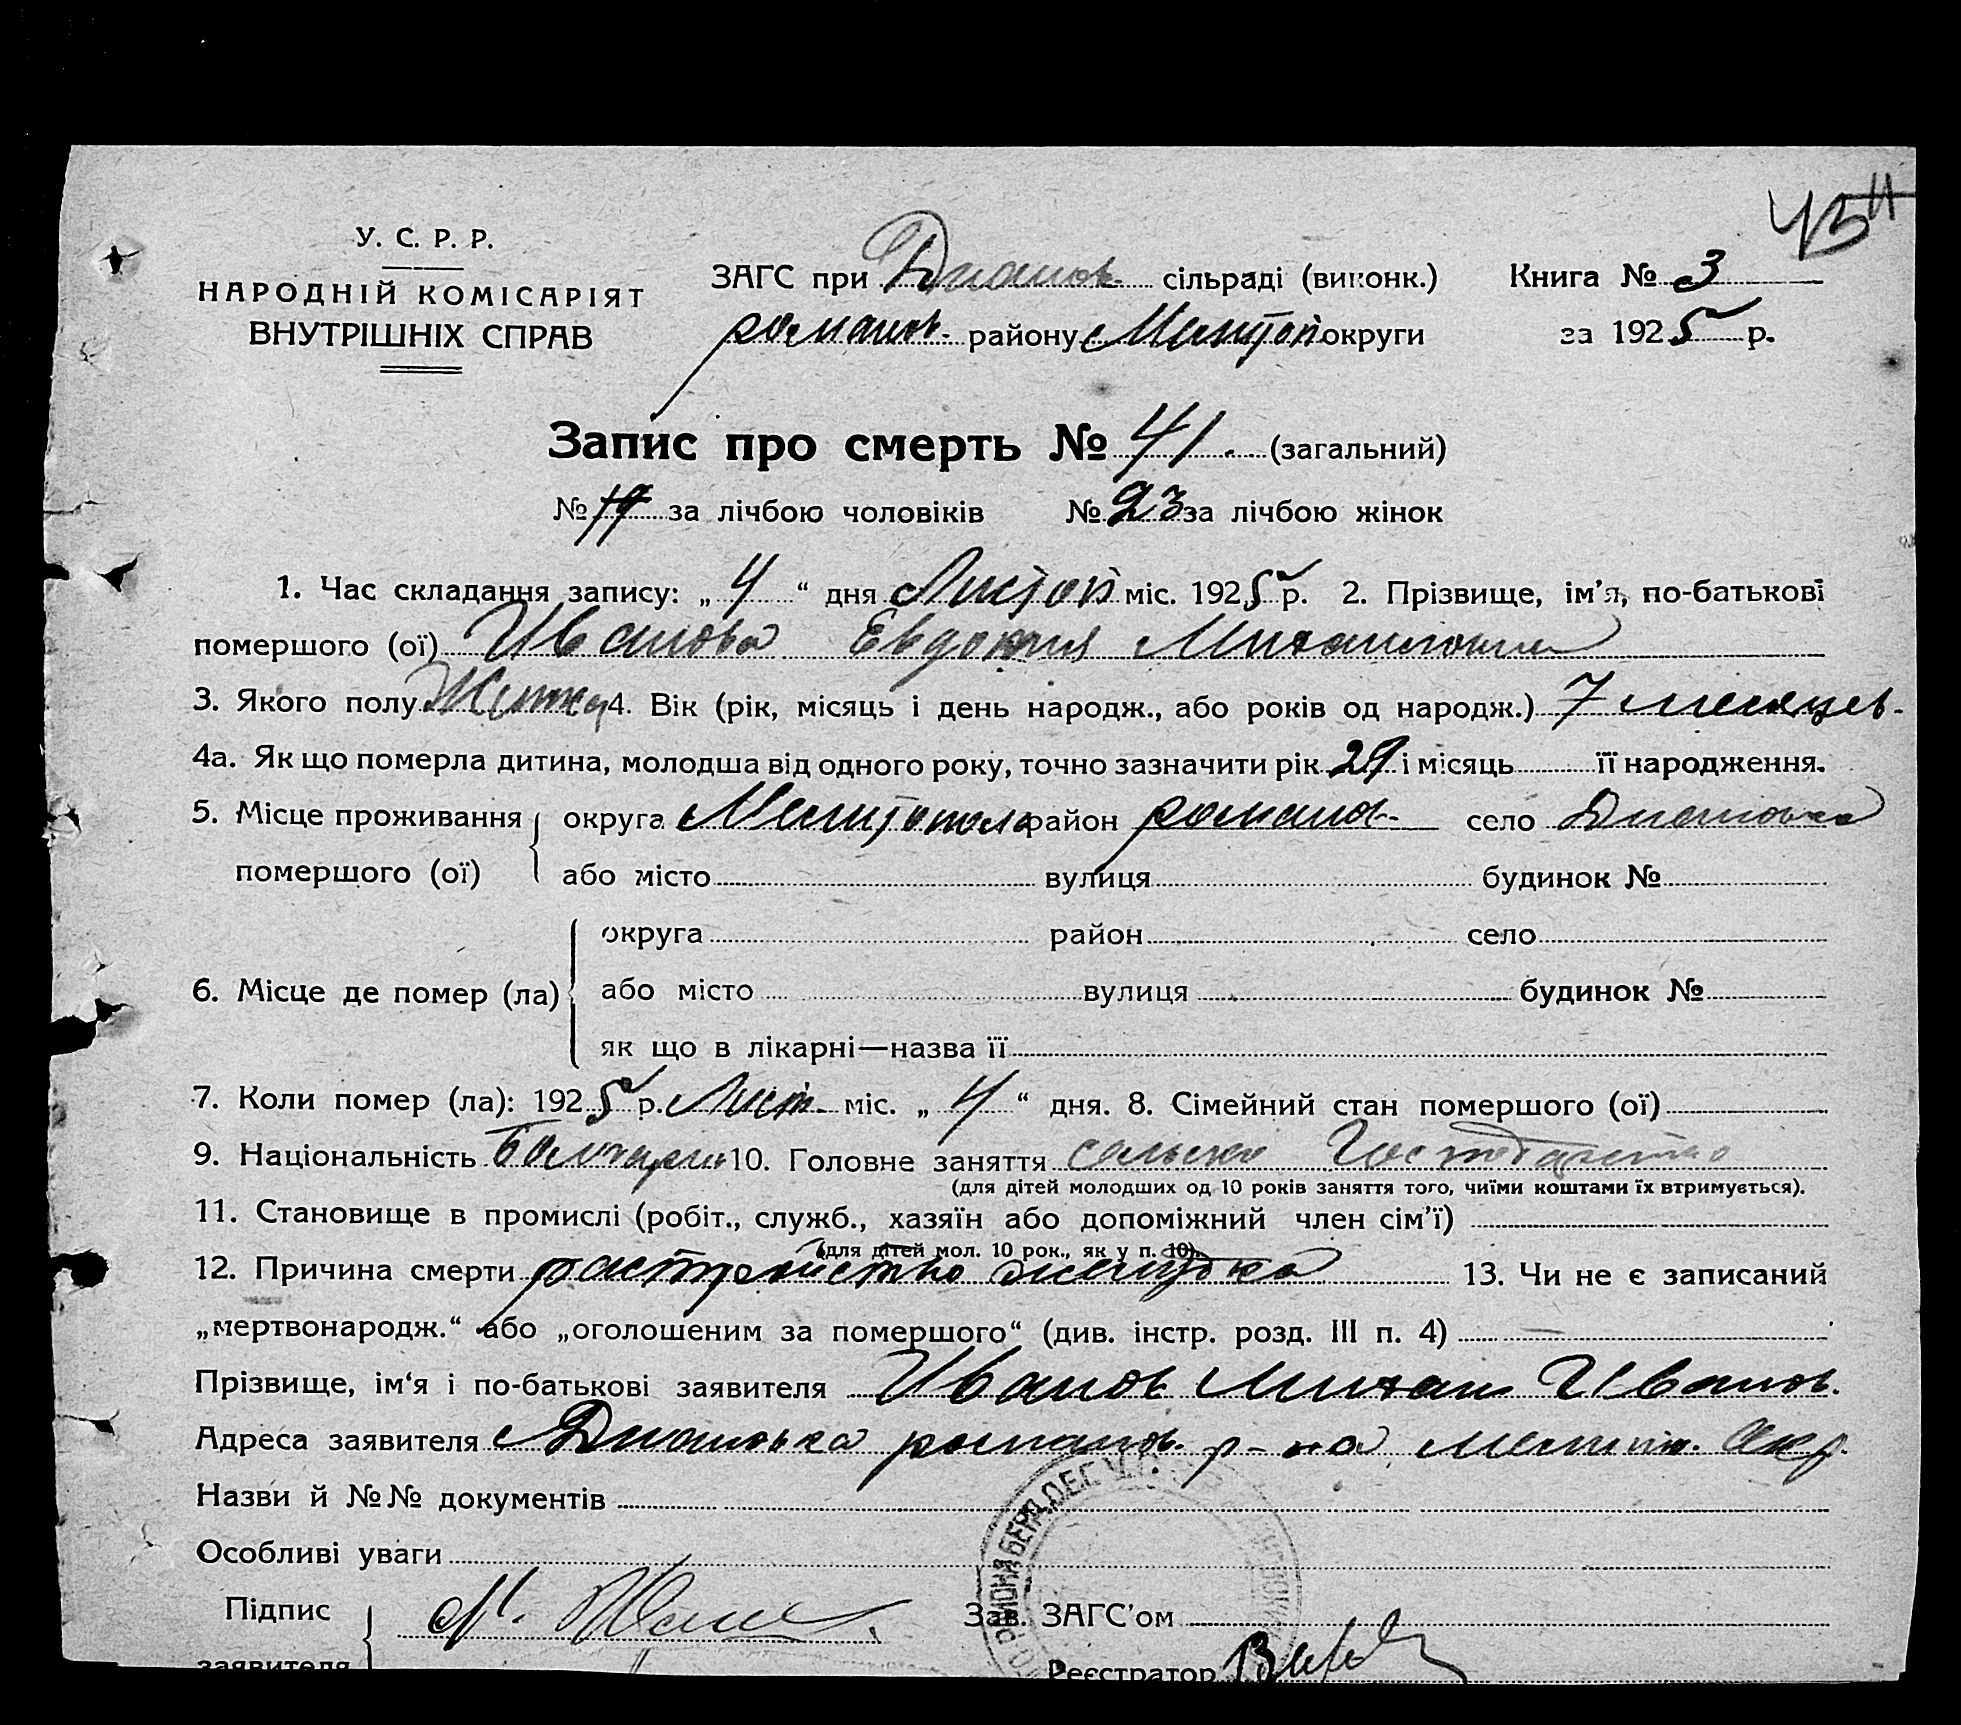 45
У. С. Р. Р.
НАРОДНІЙ КОМІСАРІЯТ
ВНУТРІШНІХ СПРАВ
ЗАГС при Диянов. сільраді (виконк.) Книга № 3
романов. району Мелітоп округи за 1925 р.
Запис про смерть № 41 (загальний)
№ за лічбою чоловіків № 23 за лічбою жінок
1. Час складання запису: „ 4 “ дня Листоп міс. 1925 р. 2. Прізвище, ім'я, по-батькові
помершого (ої) Иванова Евдокия Михаиловна
3. Якого полу Жінка 4. Вік (рік, місяць і день народж., або років од народж.) 7 месяцев.
4а. Як що померла дитина, молодша від одного року, точно зазначити рік 29 і місяць її народження.
5. Місце проживання округа Мелитополь район романов. село Дияновка
помершого (ої) або місто вулиця будинок №
округа район село
6. Місце де помер (ла) або місто вулиця будинок №
як що в лікарні—назва її
7. Коли помер (ла): 1925 р. Лист. міс. „ 4 “ дня. 8. Сімейний стан помершого (ої)
9. Національність Болгарин 10. Головне заняття сельско Господарство
(для дітей молодших од 10 років заняття того, чиїми коштами їх втримується).
11. Становище в промислі (робіт., служб., хазяїн або допоміжний член сім'ї)
(для дітей мол. 10 рок., як у п. 10).
12. Причина смерти растройство желудка 13. Чи не є записаний
„мертвонародж.“ або „оголошеним за помершого“ (див. інстр. розд. III п. 4)
Прізвище, ім'я і по-батькові заявителя Иванов Михаил Иванов.
Адреса заявителя Дияновка романов. р-на мелитоп. Окр.
Назви й №№ документів
Особливі уваги
Підпис Зав. ЗАГС'ом
заявителя Реєстратор